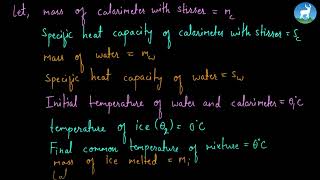 Let, mass of calorimeter with stirrer = m_c
Specific heat capacity of calorimeter with stirrer = S_c
mass of water = m_w
Specific heat capacity of water = S_w
Initial temperature of water and calorimeter = θ₁°C
temperature of ice (θ₂) = 0°C
Final common temperature of mixture = θ°C
mass of ice melted = m_i